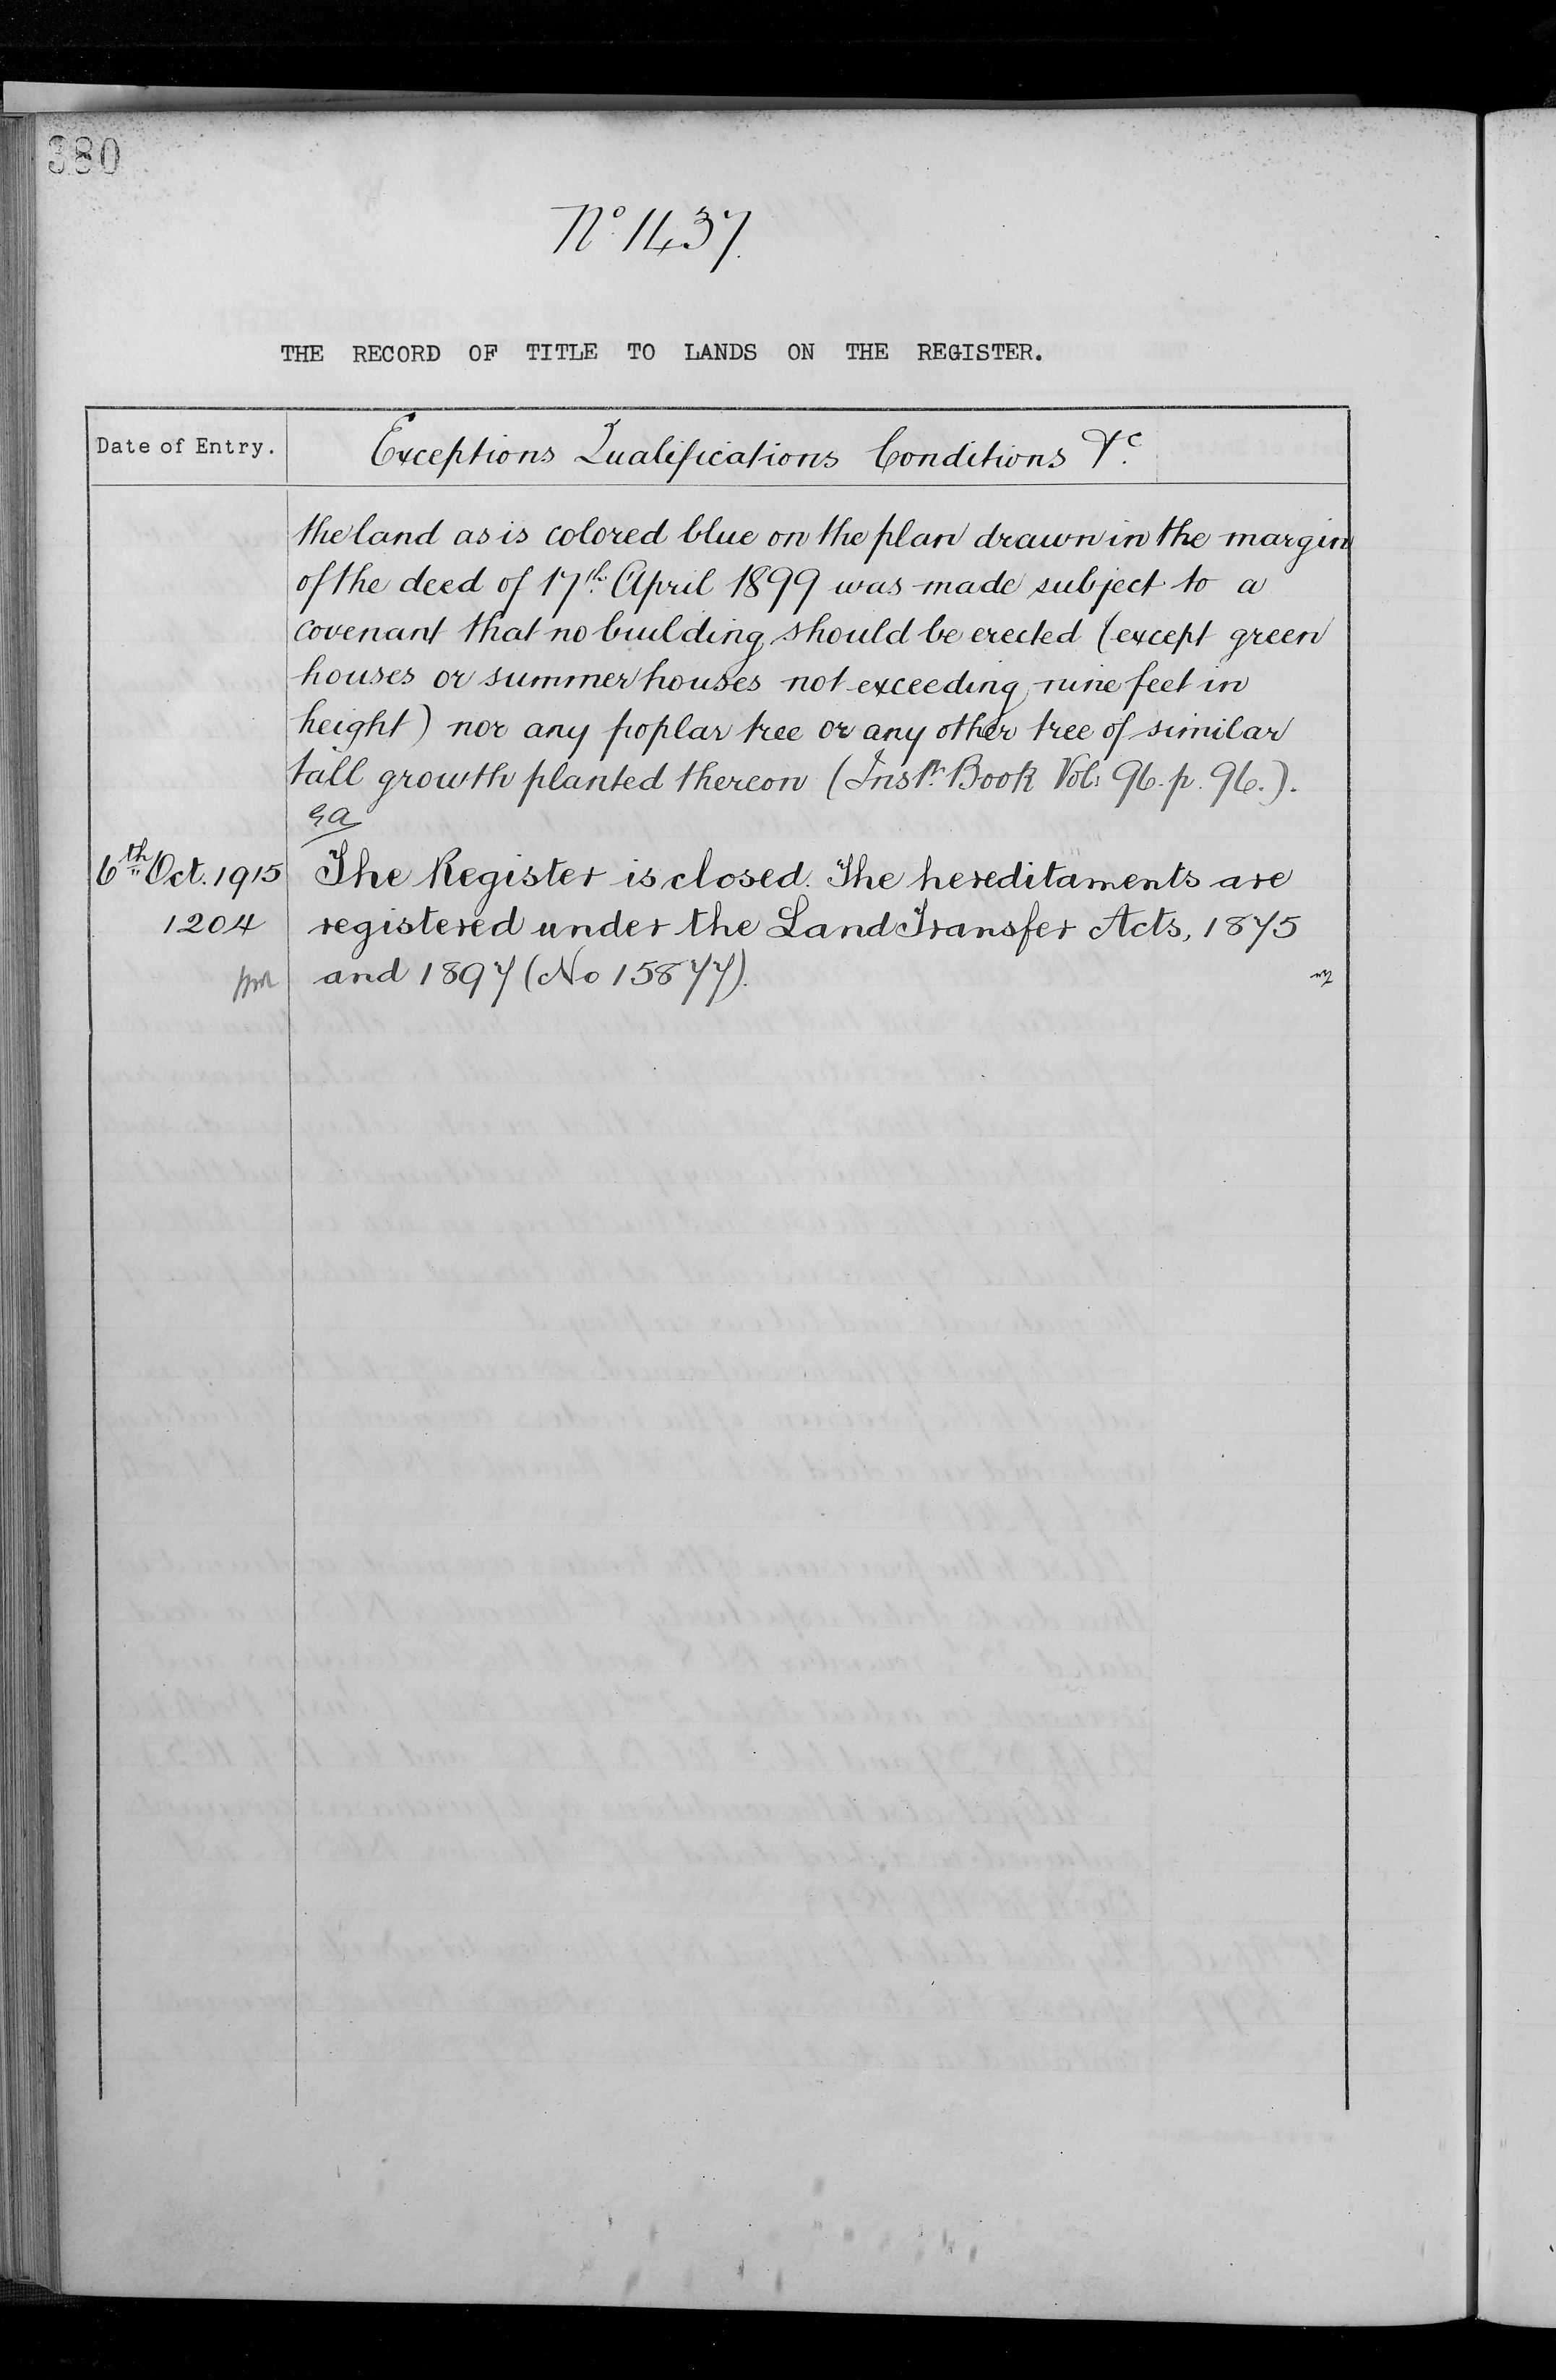 380
No. 1437.
THE RECORD OF TITLE TO LANDS ON THE REGISTER.
Date of Entry.
Exceptions Qualifications Conditions &c.
the land as is colored blue on the plan drawn in the margin
of the deed of 17th. April 1899 was made subject to a
covenant that no building should be erected (except green
houses or summer houses not exceeding nine feet in
height) nor any poplar tree or any other tree of similar
tall growth planted thereon (Instr. Book Vol: 96. p. 96.).
6th Oct. 1915 The Register is closed. The hereditaments are
1204 registered under the Land Transfer Acts, 1875
and 1897 (No 15877).